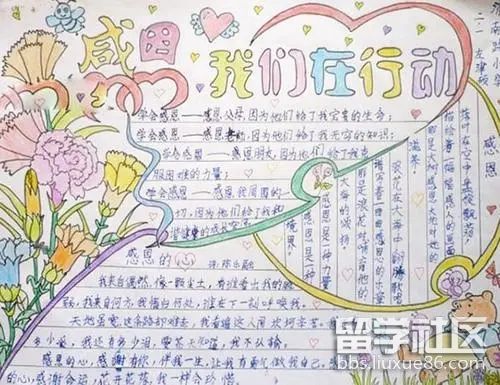 感恩
我们在行动
学会感恩——感恩父母,因为他们给了我宝贵的生命;
学会感恩——感恩老师,因为他们给了我无穷的知识;
学会感恩——感恩朋友,因为他们给了我克
服困难的力量;
学会感恩——感恩周围的一
切,因为他们给了我和
谐健康的成长空间
感恩
落叶在空中盘旋,飘荡,
描绘着一幅幅感人的画面
那是大树感恩大地对她的
滋养。
浪花在大海中翻腾歌唱
一曲曲感恩的乐章
那是浪花感恩哺育他的
大海的颂扬
感恩是一种力量
感恩是一种境界!
感恩的心
词:陈乐融
我来自偶然,像一颗尘土,有谁看出我的脆
弱,我来自何方,我情归何处,谁在下一刻呼唤我。
天地虽宽,这条路却难走,我看遍这人间坎坷辛苦。
多少爱,我还有多少泪,要苍天知道,我不认输。
感恩的心,感谢有你,伴我一生,让我有勇气做我自己。
的心,感谢命运,花开花落,我一样会珍惜
留学社区
bbs.liuxue86.com